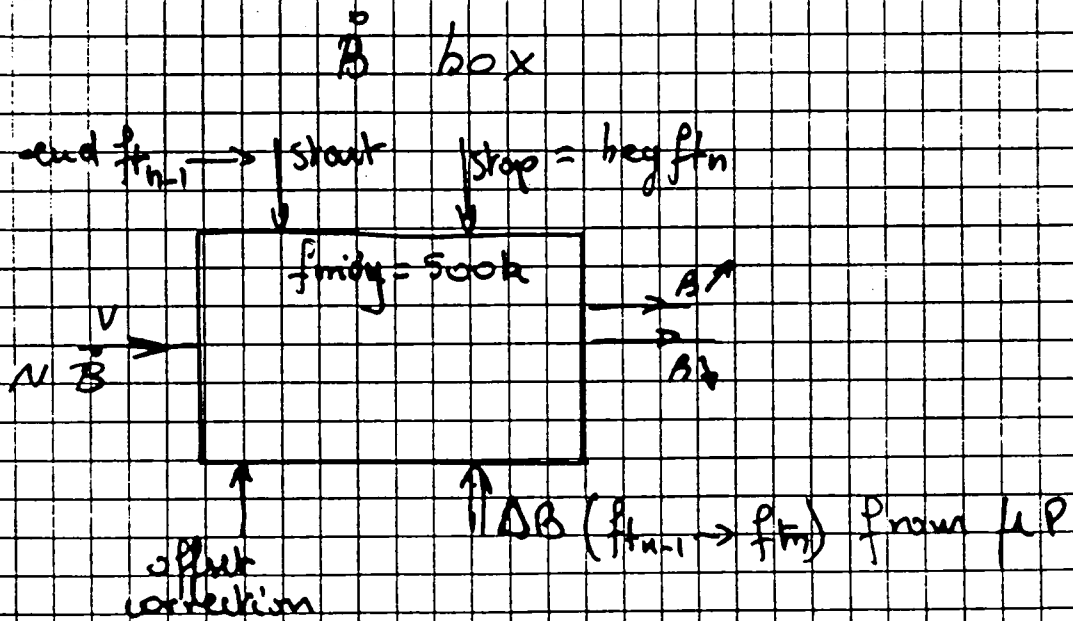 Ḃ box
end ft n-1 → start
stop = beg ft n
fmidy = 500k
V
N Ḃ
B ↗
B ↘
offset
correction
ΔB (ft n-1 → ft n) from μP